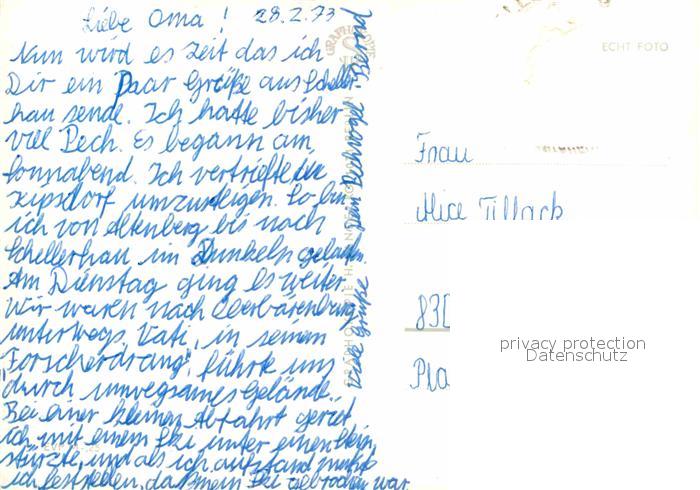 Liebe Oma! 28.2.73
Nun wird es Zeit das ich
Dir ein Paar Grüße aus Scheller-
hau sende. Ich hatte bisher
viel Pech. Es begann am
Sonnabend. Ich vertriefte in
Kipsdorf umzusteigen. So bin
ich von Altenberg bis nach
Schellerhau im Dunkeln gelaufen.
Am Dienstag ging es weiter.
Wir waren nach Oberbärenburg
unterwegs. Vati, in seinem
"Forscherdrang", führte uns
durch unwegsames Gelände.
Bei einer kleinen Abfahrt geriet
ich mit einem Ski unter einen Stein,
stürzte, und als ich aufstand mußte
ich feststellen, daß mein Ski gebrochen war
Viele Grüße Dein Pechvogel Bernd
ECHT FOTO
Frau
Alice Tillack
830
Pla
privacy protection
Datenschutz